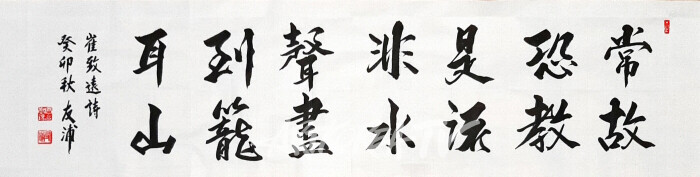 常恐是非聲到耳
故教流水盡籠山
崔致遠詩
癸卯秋 友浦